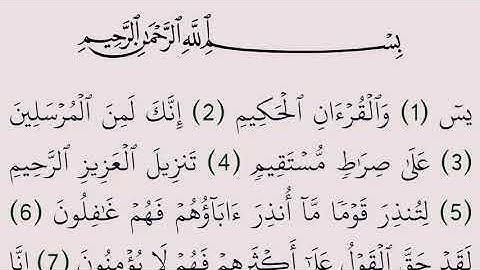 بِسْمِ ٱللَّهِ ٱلرَّحْمَٰنِ ٱلرَّحِيمِ
يسٓ (1) وَٱلْقُرْءَانِ ٱلْحَكِيمِ (2) إِنَّكَ لَمِنَ ٱلْمُرْسَلِينَ
(3) عَلَىٰ صِرَٰطٍ مُّسْتَقِيمٍ (4) تَنزِيلَ ٱلْعَزِيزِ ٱلرَّحِيمِ
(5) لِتُنذِرَ قَوْمًا مَّآ أُنذِرَ ءَابَآؤُهُمْ فَهُمْ غَٰفِلُونَ (6)
لَقَدْ حَقَّ ٱلْقَوْلُ عَلَىٰٓ أَكْثَرِهِمْ فَهُمْ لَا يُؤْمِنُونَ (7) إِنَّا